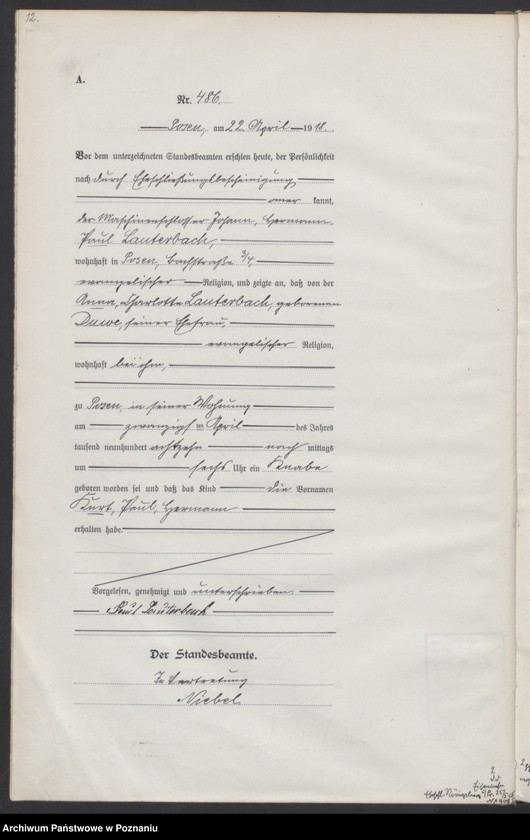 12.
A.
Nr. 486.
Posen, am 22 April 1918.
Vor dem unterzeichneten Standesbeamten erschien heute, der Persönlichkeit
nach durch Eheschließungsbescheinigung
aner kannt,
der Maschinenschlosser Johann, Hermann,
Paul Lauterbach,
wohnhaft in Posen, Bachstraße 3/4,
evangelischer Religion, und zeigte an, daß von der
Anna, Charlotte Lauterbach, geborenen
Duwe, seiner Ehefrau,
evangelischer Religion,
wohnhaft bei ihm,
zu Posen, in seiner Wohnung
am zwanzigsten April des Jahres
tausend neunhundert achtzehn nach mittags
um sechs Uhr ein Knabe
geboren worden sei und daß das Kind die Vornamen
Kurt, Paul, Hermann
erhalten habe.
Vorgelesen, genehmigt und unterschrieben.
Paul Lauterbach
Der Standesbeamte.
In Vertretung
Niebel.
Archiwum Państwowe w Poznaniu